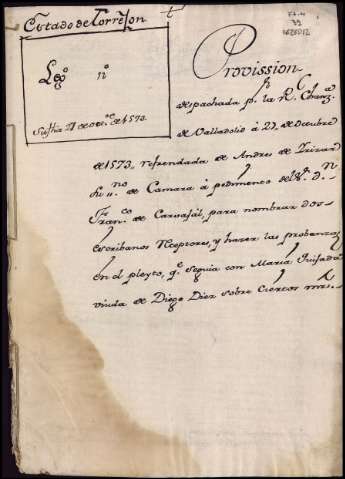 Estado de Torrejon
Leg.º n.º
Su fha 27 de oct.re de 1573.
Provission
despachada p.r la R.l Chanz.a
de Valladolid á 27, de Octubre
de 1573, refrendada de Andres de
de Camara á pedimento del S.r D.n
Fran.co de Carvajal, para nombrar dos
escribanos Rceptores, y hazer las probanzas
en el pleyto, q.e seguia con Maria Quijada
viuda de Diego Diez sobre ciertos mrs.